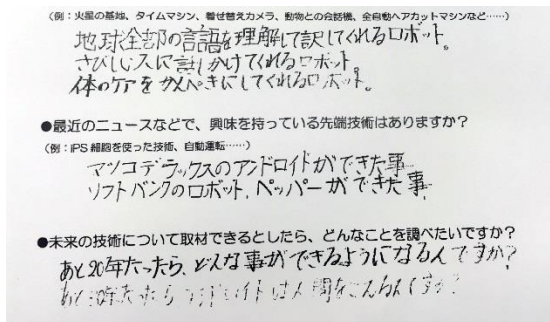 (例：火星の基地、タイムマシン、着せ替えカメラ、動物との会話機、全自動ヘアカットマシンなど……)
地球全部の言語を理解して訳してくれるロボット。
さびしい人に話しかけてくれるロボット。
体のケアをかんぺきにしてくれるロボット。
●最近のニュースなどで、興味を持っている先端技術はありますか？
(例：iPS細胞を使った技術、自動運転……)
マツコデラックスのアンドロイドができた事
ソフトバンクのロボット、ペッパーができた事
●未来の技術について取材できるとしたら、どんなことを調べたいですか？
あと20年たったら、どんな事ができるようになるんですか？
あと 年たったら アンドロイドは人間をこえるんですか？